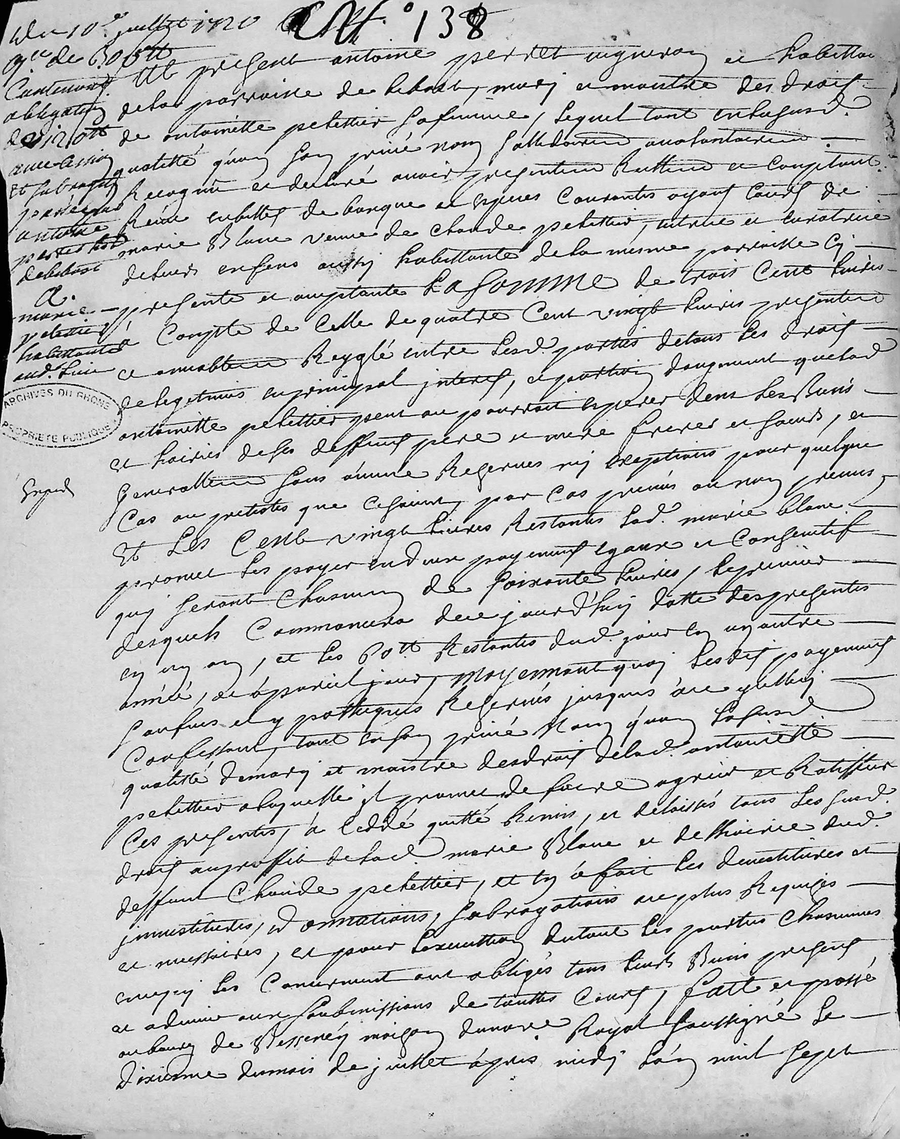 du 10e juillet 1720
N° 138
qce de 300tt
Contenant
obligation
de 120tt
avec
et subrogation
par
antoine
perret
de bibost
A.
marie
peltier
habittante
aud. lieu
ARCHIVES DU RHONE
PROPRIETE PUBLIQUE
Expedié
Est present antoine perret vigneron et habittant
de la parroisse de bibost, mary et maistre des droits
de antoinette pelletier sa femme, lequel tant en lad.
qualitté qu'en son privé nom sollidairement
Recognu et declaré avoir presentement Receu et Comptant
en billets de banque et espèces Courantes ayant Cours de
marie Blanc veuve de claude pelletier, tutrice et curatrice
de leurs enfans aussy habittante de la mesme parroisse cy
presente et acceptante La Somme de trois Cent livres
a Compte de Celle de quatre Cent vingt livres presentement
et Reyglé entre Lesd. parties de tous Les droits
de legitime en principal interest, et portion d'augment que lad.
antoinette pelletier peut ou pourroit esperer dans Les Biens
et hoiries de ses deffunts pere et mere freres et soeurs, et
generallement sans aucune Reserves ny exceptions pour quelque
Cas ou pretextes que ce soint, par Cas preveus ou non preveus,
Et Les Cent vingt livres Restantes lad. marie blanc
promet Les payer en deux payements Egaux et Consecutifs
quy seront Chascun de soixante livres, Le premier
desquels Commancera de ce jourd'huy datte des presentes
en un an, et les 60tt Restantes dud. jour en un autre
année, et a pareil jour, Moyennant quoy Lesdits payements
sauf et y Reservés jusques
Confessant, tant en son privé Nom qu'en Lad.
qualitté de mary et maistre des droits de lad. antoinette
pelletier a laquelle il promet de faire agreer et Ratiffier
Ces presentes, a Ceddé quitté Remis, et delaissé tous Les susd.
droits au proffit de lad. marie Blanc et de l'hoirie dud.
deffunt Claude pelletier, et en a fait Les devestitures et
investitures, donnations, subrogations au plus Requises
et necessaires, et pour L'execution du tout Les parties Chascunes
en ce qui Les Concernent ont obligés tous leurs Biens presents
et advenir aux soubmissions de touttes Cours, fait et passé
au bourg de Bessenay maison du notaire Royal soussigné Le
dixieme du mois de juillet après midy L'an mil Sept